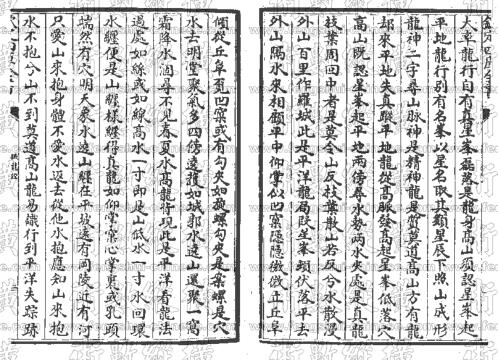 欽定四庫全書
大率龍行自有真星峯磊落是龍身高山須認星峯起
平地龍行別有名峯以星名取其類星辰下照山成形
龍神二字尋山脈神是精神龍是質莫道高山方有龍
却來平地失真蹤平地龍從高脈發高起星峯低落穴
高山既認星峯起平地兩傍尋水勢兩水夾處是真龍
枝葉周回中者是莫令山反枝葉散山若反兮水散漫
外山百里作羅城此是平洋龍局段星峯頓伏落平去
外山隔水來相顧平中仰掌似凹窠隱隱微微立丘阜
傾從丘阜覓凹窠或有勾夾如旋螺勾夾是案螺是穴
水去明堂聚氣多四傍遶護如城郭水遶山還聚一窩
霜降水涸尋不見春夏水高龍背現此是平洋看龍法
過處如絲或如線高水一寸即是山低水一寸水回環
水纏便是山纏樣纏得真龍如仰掌窠心掌裏或乳頭
端然有穴明天象水遶山纏在平坡遠有岡陵近有河
只愛山來抱身體不愛水返去從他水抱應知山來抱
水不抱兮山不到莫道高山龍易識行到平洋失蹤跡
撼龍經